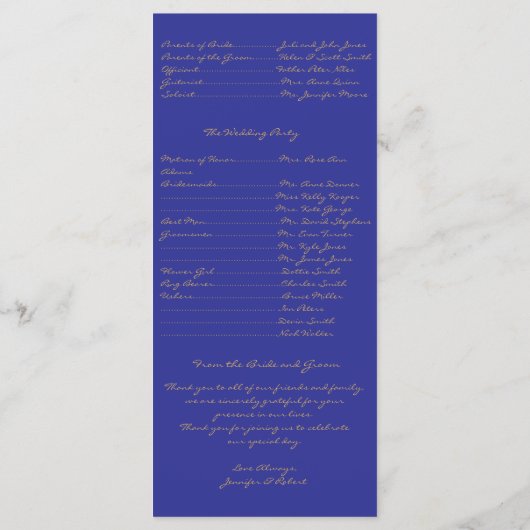 Parents of Bride...............Juli and John Jones
Parents of the Groom.........Helen & Scott Smith
Officiant..........................Father Peter Niles
Guitarist............................Mrs. Anne Quinn
Soloist..............................Ms. Jennifer Moore
The Wedding Party
Matron of Honor...............Mrs. Rose Ann
Adams
Bridesmaids.....................Ms. Anne Denner
......................................Miss Kelly Kooper
......................................Mrs. Kate George
Best Man.........................Mr. David Stephens
Groomsmen.....................Mr. Evan Turner
......................................Mr. Kyle Jones
......................................Mr. James Jones
Flower Girl......................Dottie Smith
Ring Bearer.....................Charles Smith
Ushers.............................Bruce Miller
......................................Jon Peters
......................................Devin Smith
......................................Noah Walker
From the Bride and Groom
Thank you to all of our friends and family,
we are sincerely grateful for your
presence in our lives.
Thank you for joining us to celebrate
our special day.
Love Always,
Jennifer & Robert